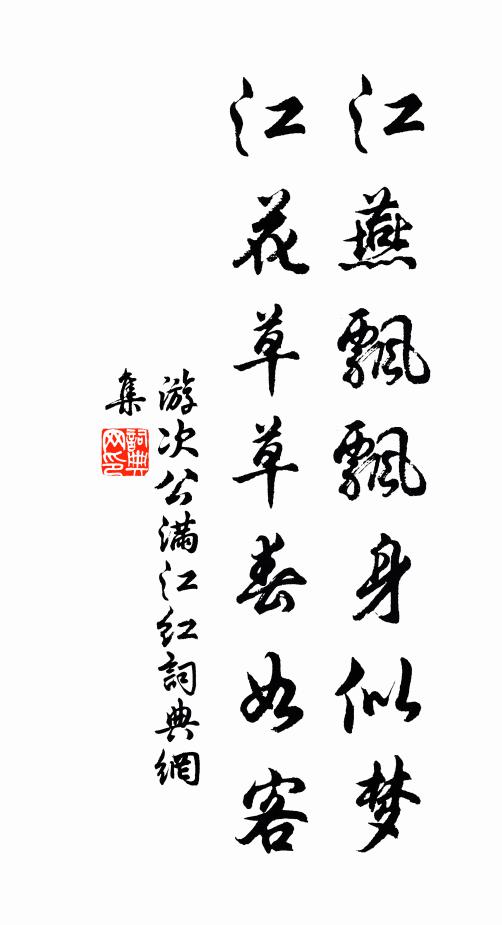 江燕飄飄身似梦
江花草草春如客
游次公滿江红詞典網
集
詞典
网印